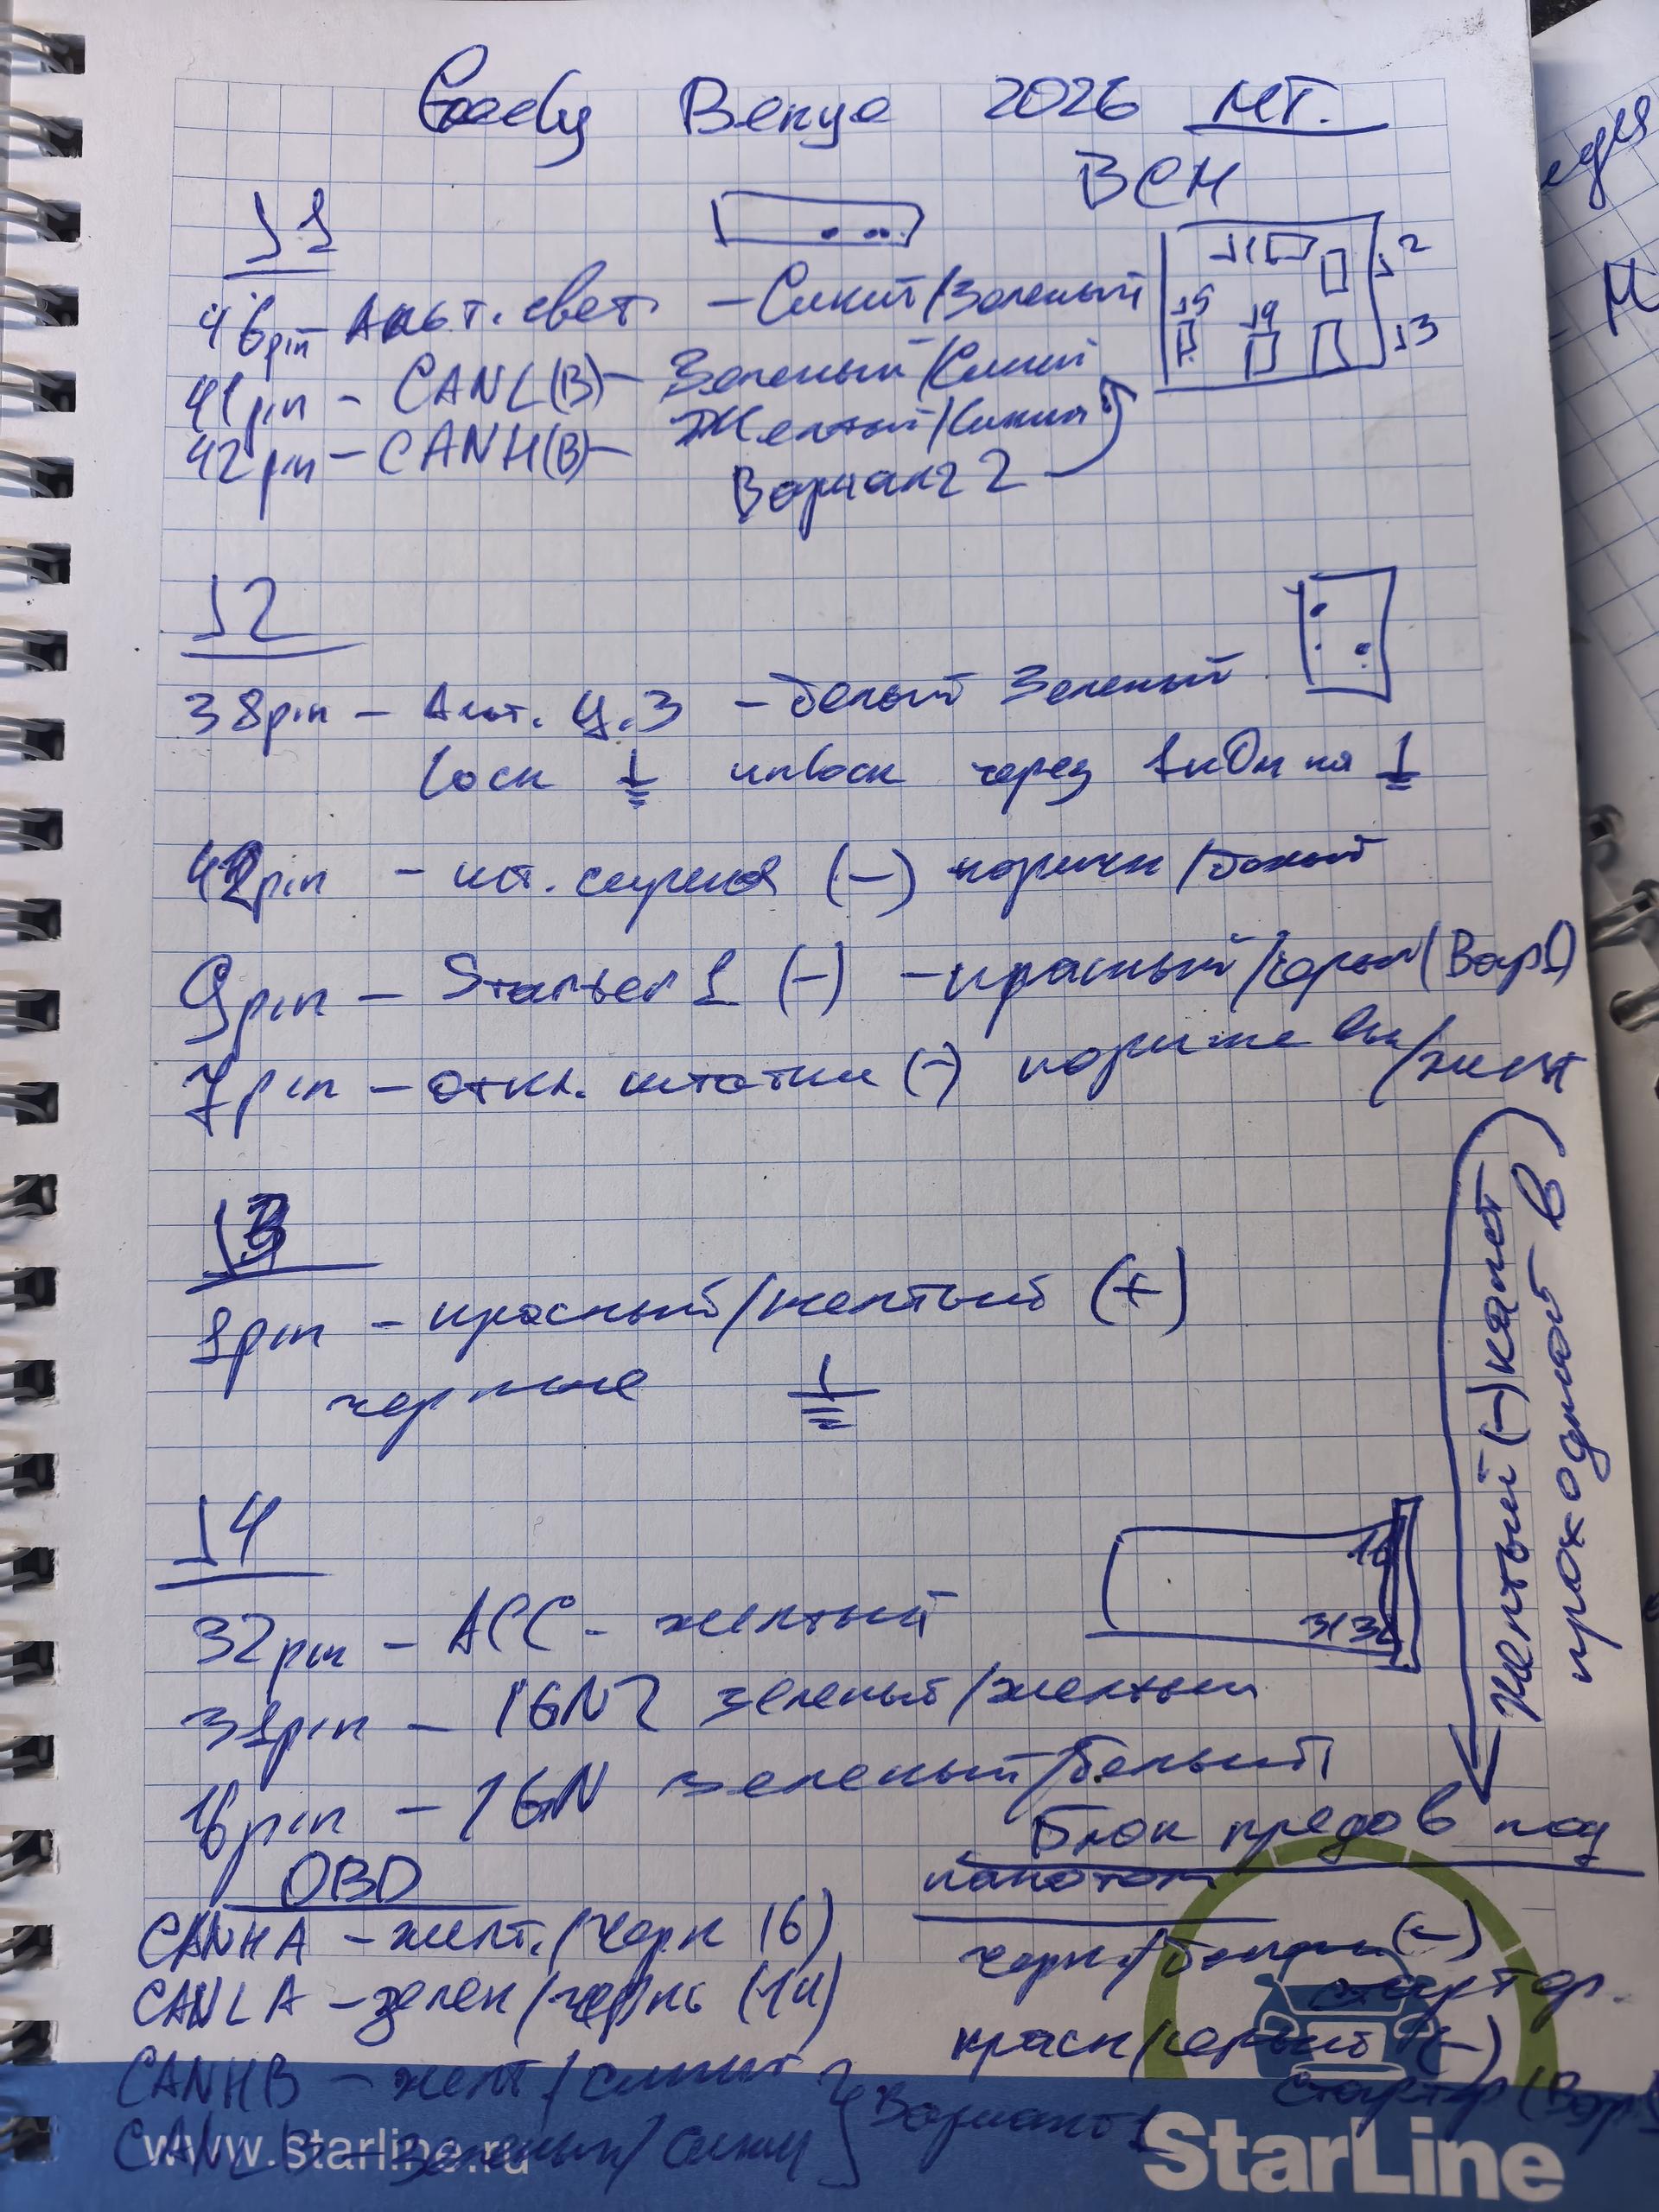 Geely Венуе 2026 МТ.
BCM
J1
J1 J2
J5 J4 J3
46pin Альт. свет. – Синий/Зеленый
41pin – CANL(B) – Зеленый/Синий
42pin – CANH(B) – Желтый/Синий
Вариант 2
J2
38pin – Альт. Ц.З – белый Зеленый
lock unlock через 1кОм на
pin – (–) коричн/белый
9pin – Starter 1 (–) – красный/серый (Вар1)
7pin – откл. штатки (–) коричневый/желт
J3
1pin – красный/желтый (+)
черные
J4
16
31 32
32pin – ACC – желтый
31pin – IGN2 зеленый/желтый
16pin – IGN зеленый/белый
Желтый (–) капот
проходной в
Блок предов под
капотом
черн/белый (–)
стартер.
красн/серый (–)
стартер (Вар
OBD
CANHA – желт./черн (6)
CANLA – зелен/черн (14)
CANHB – желт/синий
CANLB – зеленый/синий
Вариант 1
www.starline.ru
StarLine